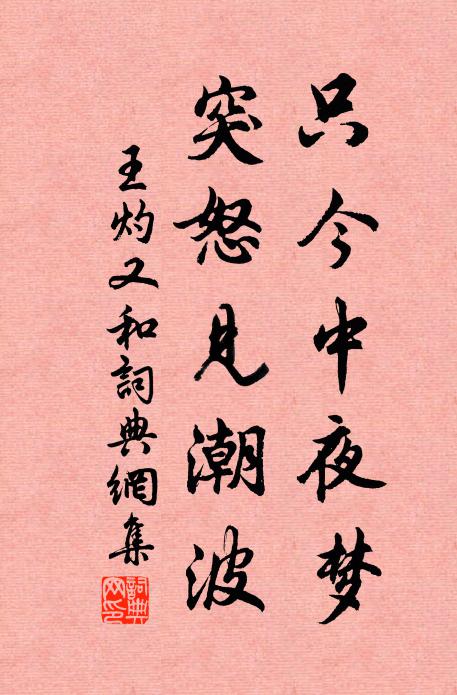 只今中夜梦
突怒见潮波
王灼又和詞典網集
詞典網印